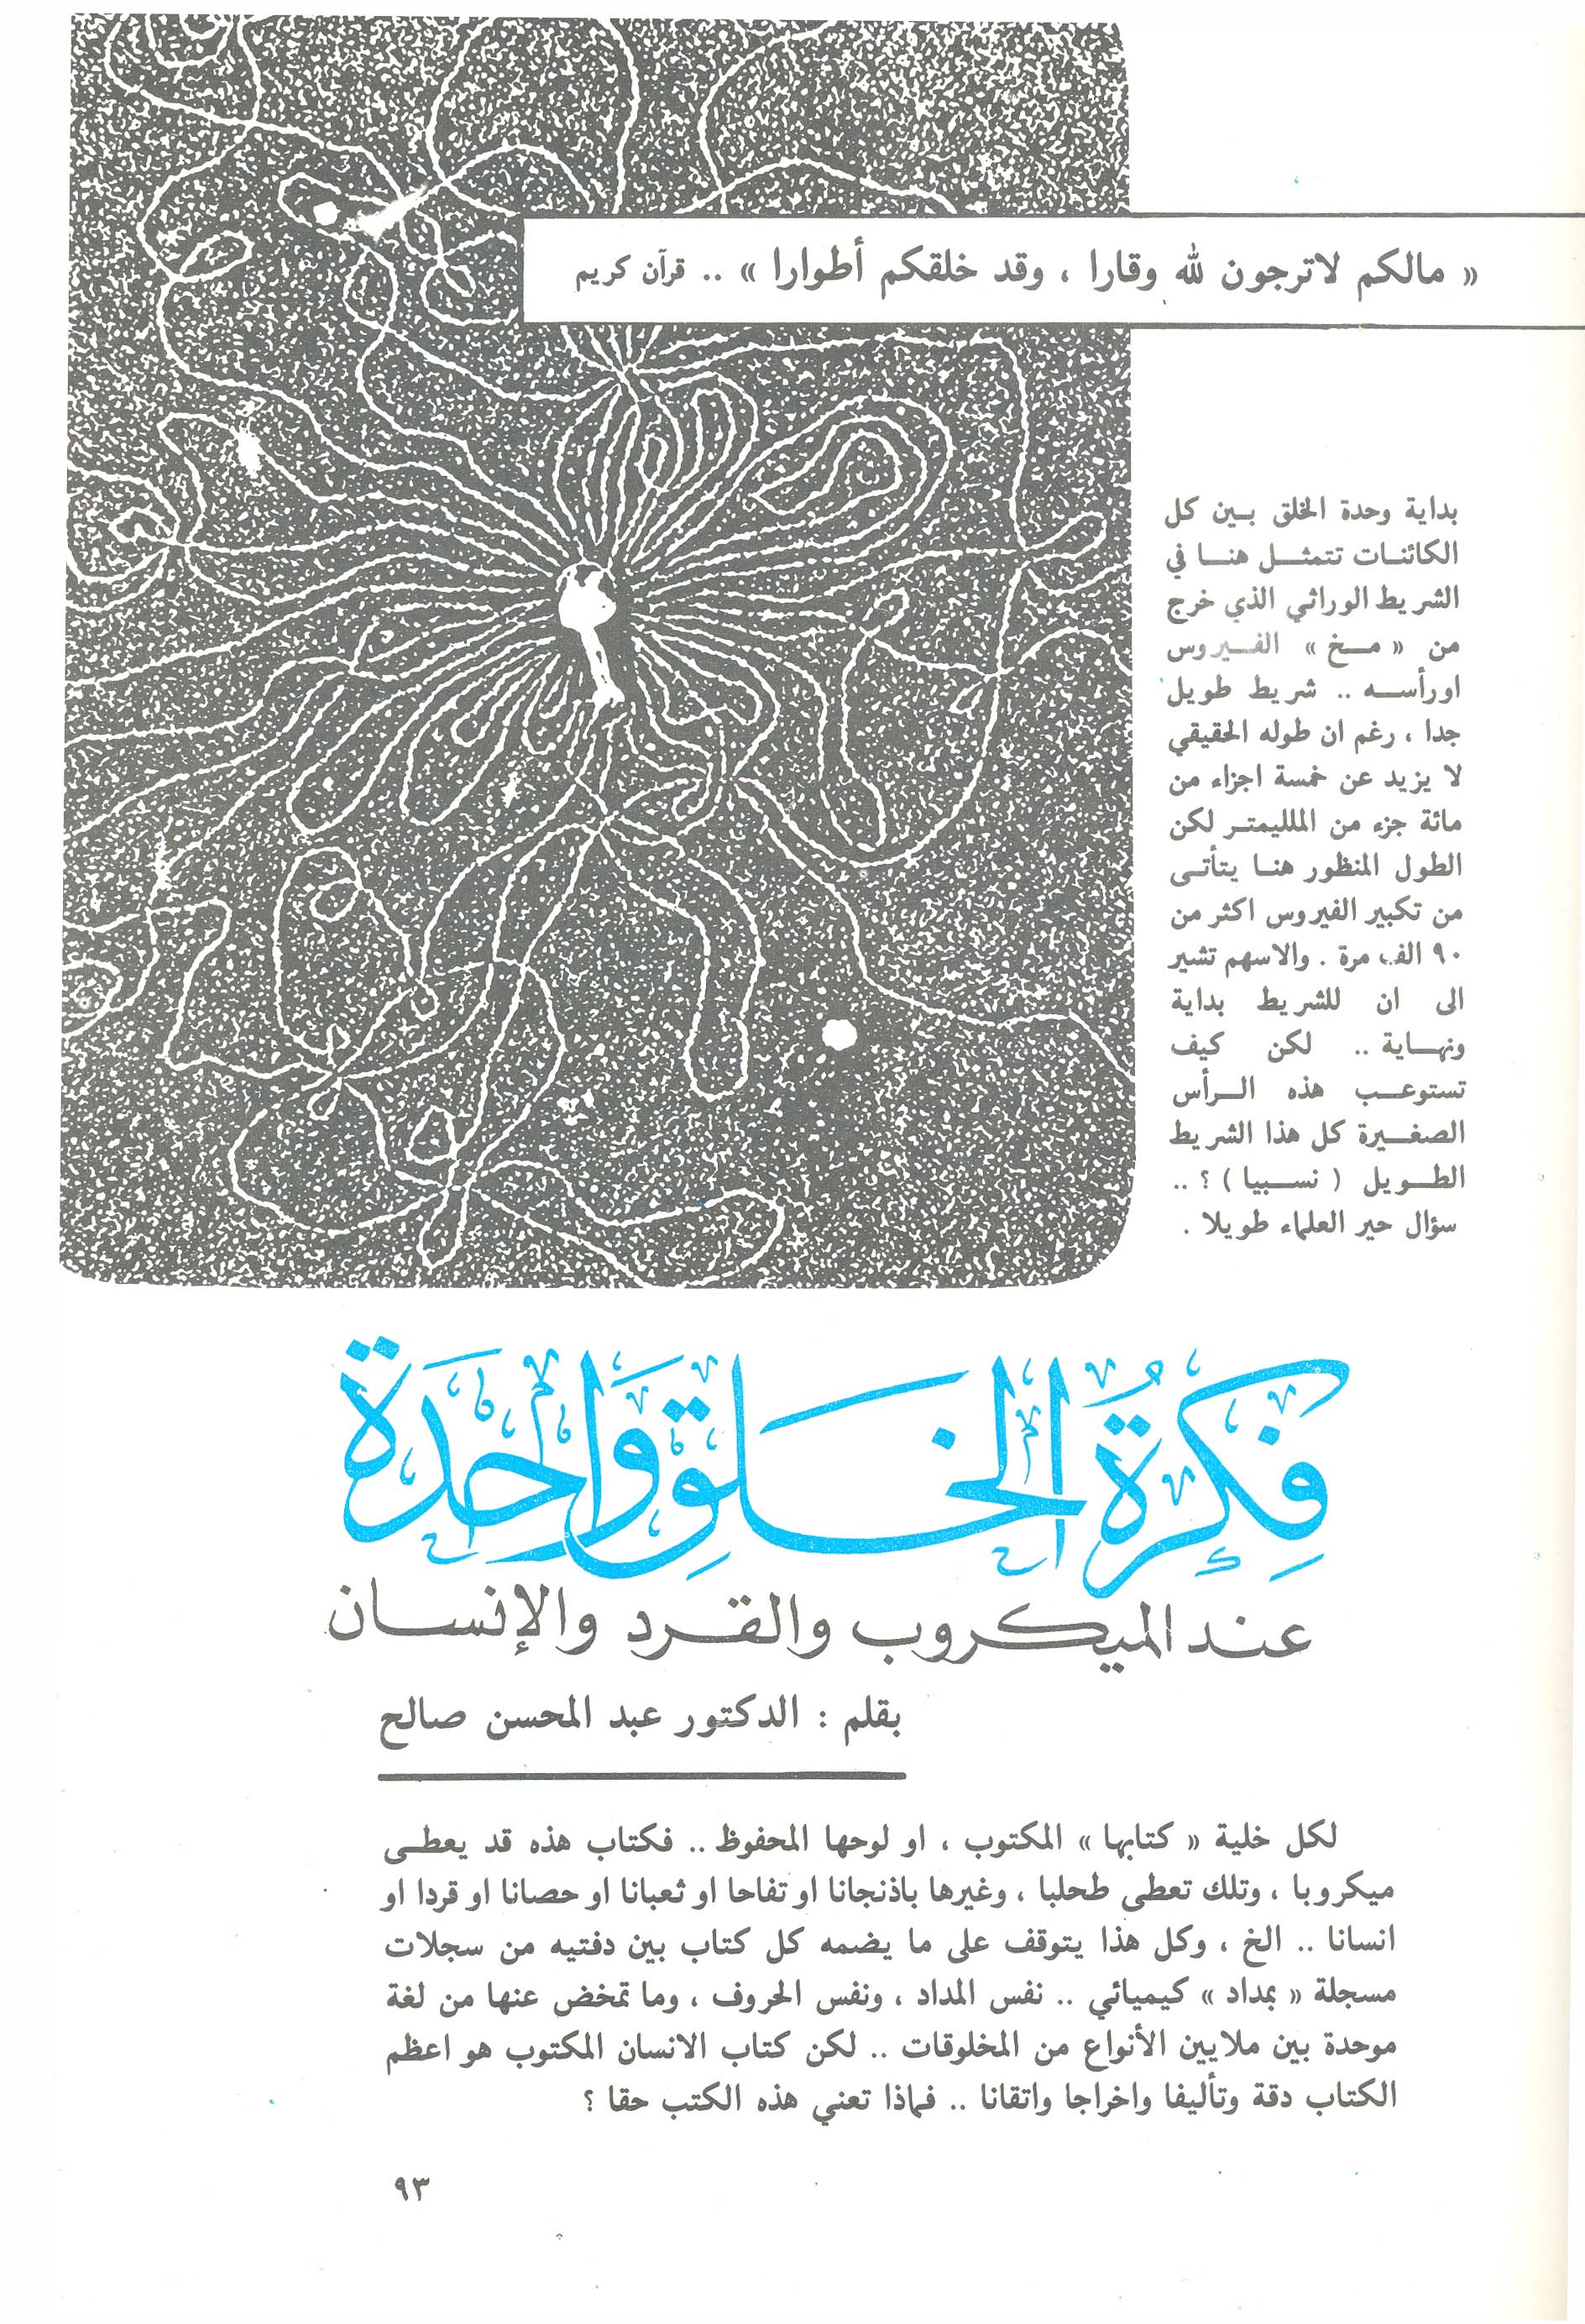 « مالكم لاترجون لله وقارا ، وقد خلقكم أطوارا » .. قرآن كريم
بداية وحدة الخلق بين كل
الكائنات تتمثل هنا في
الشريط الوراثي الذي خرج
من « مخ » الفيروس
اورأسه .. شريط طويل
جدا ، رغم ان طوله الحقيقي
لا يزيد عن خمسة اجزاء من
مائة جزء من الملليمتر لكن
الطول المنظور هنا يتأتى
من تكبير الفيروس اكثر من
٩٠ الف مرة . والاسهم تشير
الى ان للشريط بداية
ونهاية .. لكن كيف
تستوعب هذه الرأس
الصغيرة كل هذا الشريط
الطويل ( نسبيا ) ؟ ..
سؤال حير العلماء طويلا .
فِكرَةُ الخَلقِ وَاحِدَة
عند الميكروب والقرد والإنسان
بقلم : الدكتور عبد المحسن صالح
لكل خلية « كتابها » المكتوب ، او لوحها المحفوظ .. فكتاب هذه قد يعطى
ميكروبا ، وتلك تعطى طحلبا ، وغيرها باذنجانا او تفاحا او ثعبانا او حصانا او قردا او
انسانا .. الخ ، وكل هذا يتوقف على ما يضمه كل كتاب بين دفتيه من سجلات
مسجلة « بمداد » كيميائي .. نفس المداد ، ونفس الحروف ، وما تمخض عنها من لغة
موحدة بين ملايين الأنواع من المخلوقات .. لكن كتاب الانسان المكتوب هو اعظم
الكتاب دقة وتأليفا واخراجا واتقانا .. فماذا تعني هذه الكتب حقا ؟
٩٣